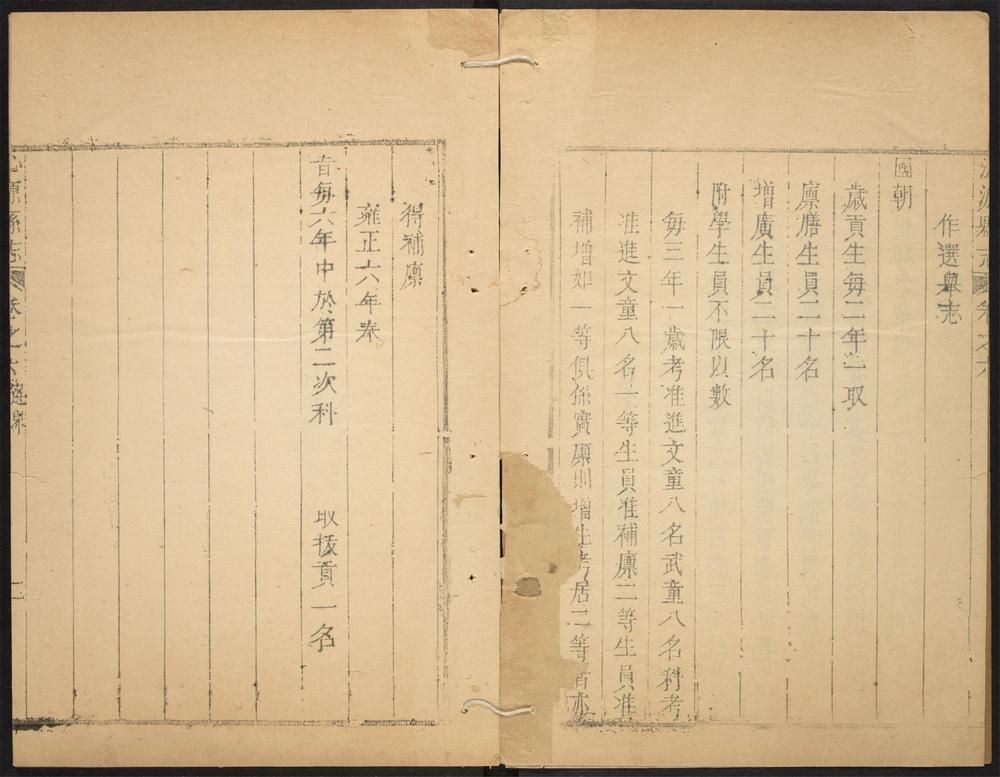 作選舉志
國朝
歲貢生每二年一取
廪膳生員二十名
增廣生員二十名
附學生員不限以數
每三年一歲考准進文童八名武童八名科考
准進文童八名一等生員准補廪二等生員准
補增如一等俱係實廪則增生考居二等者亦
得補廪
雍正六年奉
旨每六年中於第二次科 取拔貢一名
沁源縣志 卷之六 選舉 二